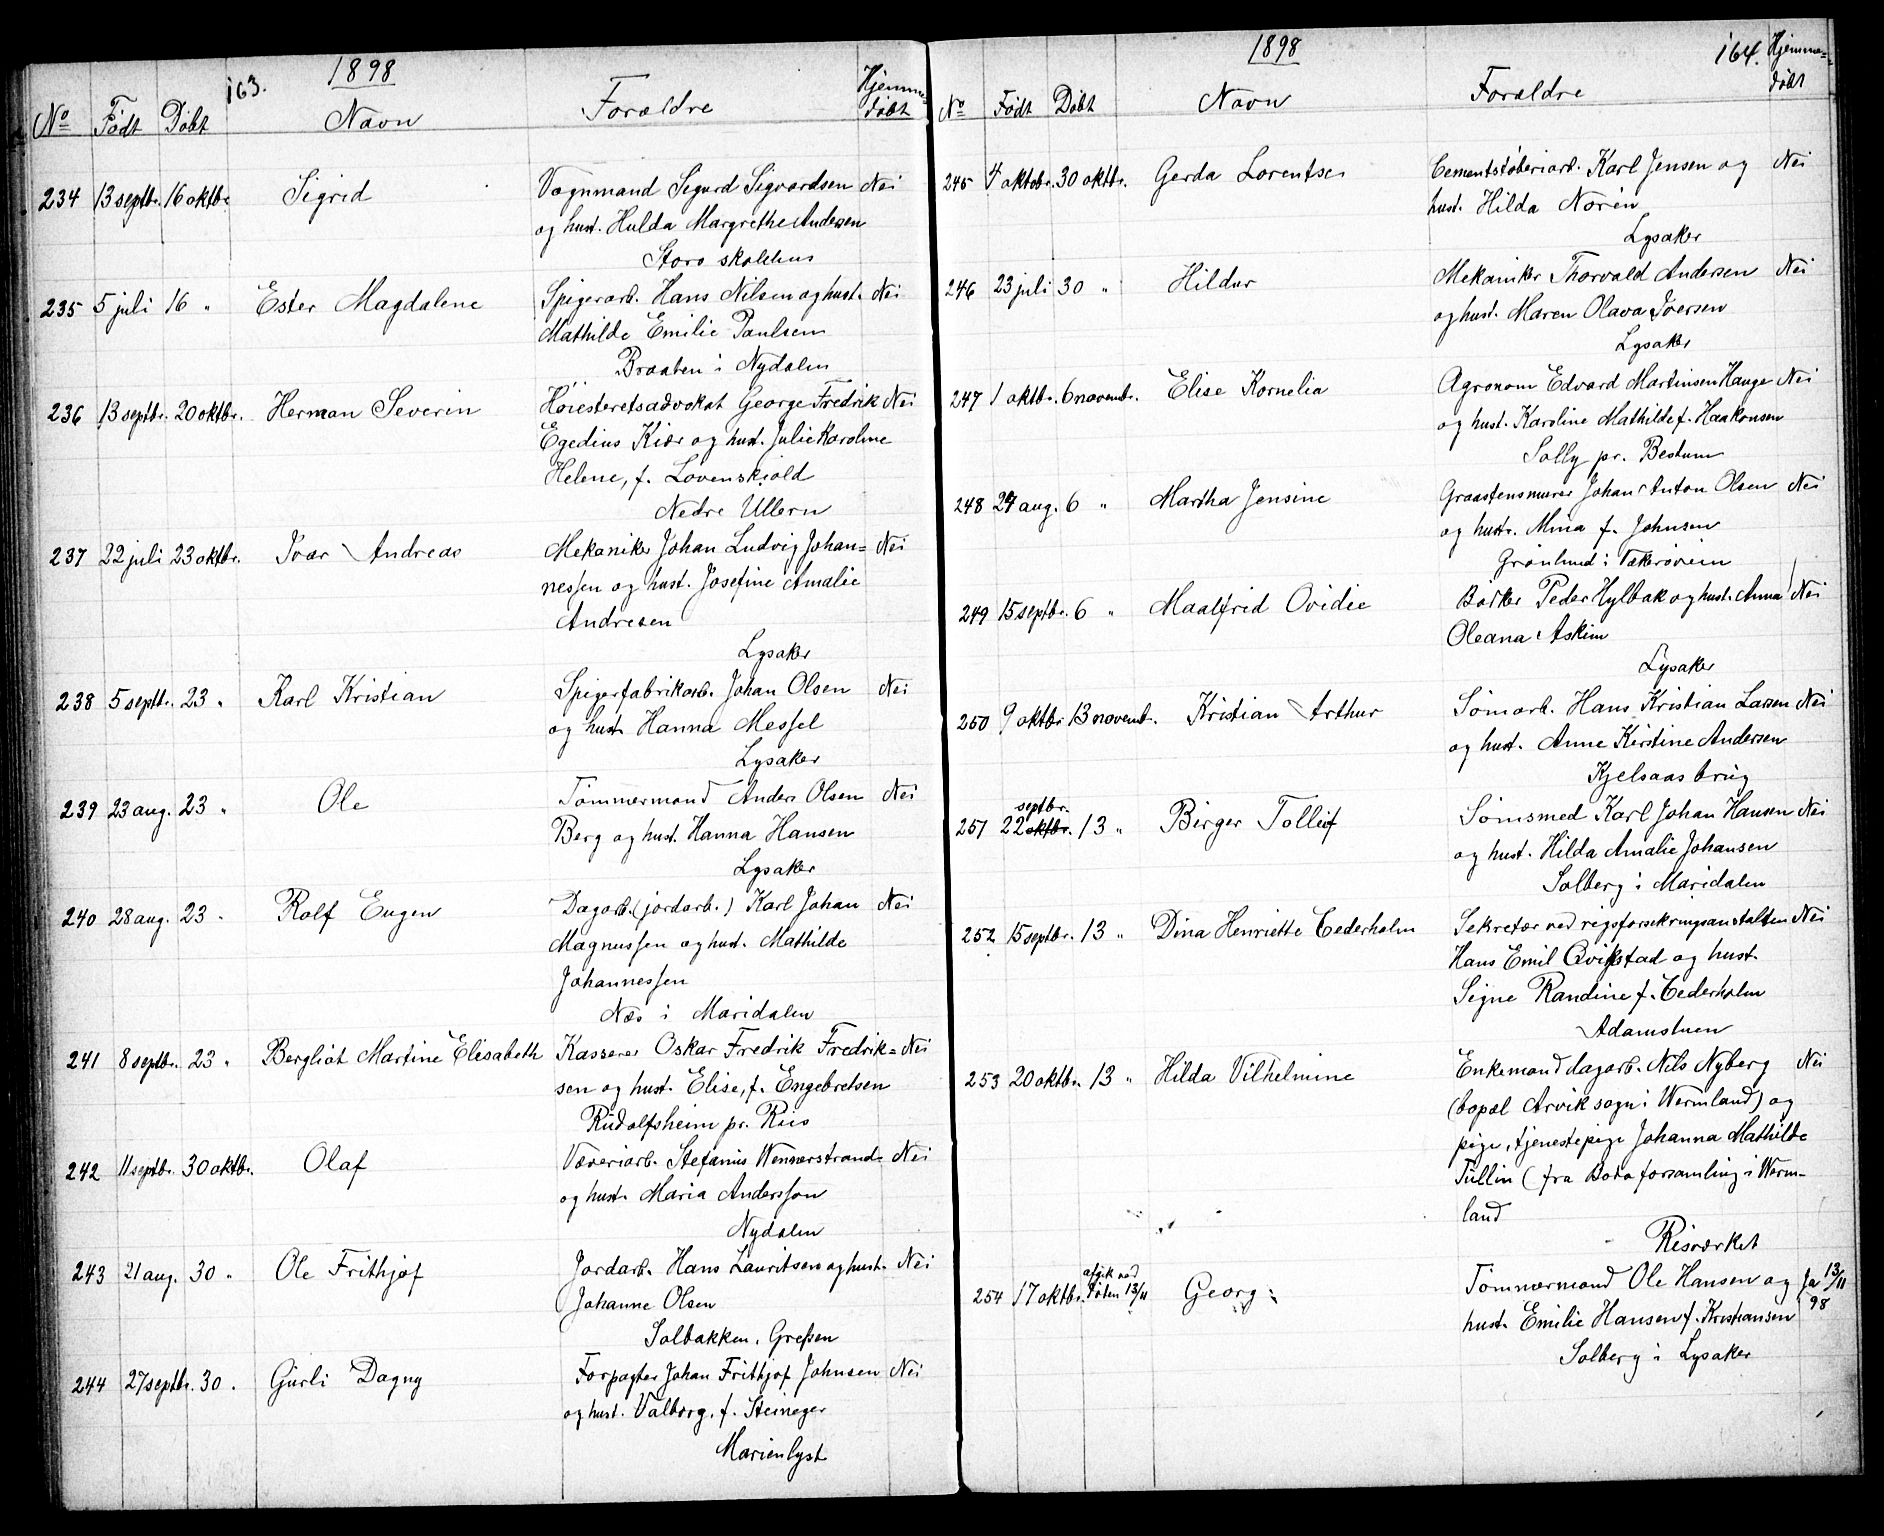 163.
1898
No Født Døbt Navn Forældre Hjemme-
døbt
234 13 septbr. 16 oktbr. Sigrid Vognmand Sigurd Sigvardsen Nei
og hust. Hulda Margrethe Andersen
Storo skolehus
235 5 juli 16 " Ester Magdalene Spigerarb. Hans Nilsen og hust. Nei
Mathilde Emilie Paulsen
Braaten i Nydalen
236 13 septbr. 20 oktbr. Herman Severin Høiesteretsadvokat George Fredrik Nei
Egedius Kiær og hust. Julie Karoline
Helene, f. Løvenskiold
Nedre Ullern
237 22 juli 23 oktbr. Ivar Andreas Mekaniker Johan Ludvig Johan= Nei
nessen og hust. Josefine Amalie
Andresen
Lysaker
238 5 septbr. 23 " Karl Kristian Spigerfabrikarb. Johan Olsen Nei
og hust. Hanna Messel
Lysaker
239 23 aug. 23 " Ole Tømmermand Anders Olsen Nei
Berg og hust. Hanna Hansen
Lysaker
240 28 aug. 23 " Rolf Eugen Dagarb. (jordarb.) Karl Johan Nei
Magnussen og hust. Mathilde
Johannessen
Næs i Maridalen
241 8 septbr. 23 " Bergliot Martine Elisabeth Kasserer Oskar Fredrik Fredrik= Nei
sen og hust. Elise, f. Engebretsen
Rudolfsheim pr. Riis
242 11 septbr. 30 oktbr. Olaf Væveriarb. Stefanus Wennerstrand Nei
og hust. Maria Andersson
Nydalen
243 21 aug. 30 " Ole Frithjof Jordarb. Hans Lauritsen og hust. Nei
Johanne Olsen
Solbakken, Grefsen
244 27 septbr. 30 " Gurli Dagny Forpagter Johan Frithjof Johnsen Nei
og hust. Valborg, f. Steineger
Marienlyst
164.
1898
No Født Døbt Navn Forældre Hjemme=
døbt
245 4 oktobr. 30 oktbr. Gerda Lorentse Cementstøberiarb. Karl Jensen og Nei
hust. Hilda Norén
Lysaker
246 23 juli 30 " Hildur Mekaniker Thorvald Andersen Nei
og hust. Maren Olava Iversen
Lysaker
247 1 oktbr. 6 novembr. Elise Kornelia Agronom Edvard Martinsen Hauge Nei
og hust. Karoline Mathilde f. Haakonsen
Solly pr. Bestum
248 24 aug. 6 " Martha Jensine Graastensmurer Johan Anton Olsen Nei
og hustr. Mina f. Johnsen
Grønlund i Vækerøveien
249 15 septbr. 6 " Maalfrid Ovidie Barker Peder Hylbak og hust. Anna Nei
Oleana Askim
Lysaker
250 9 oktbr 13 novembr. Kristian Arthur Sømarb. Hans Kristian Larsen Nei
og hust. Anne Kirstine Andersen
Kjelsaas brug
septbr.
251 22 oktbr. 13 " Birger Tollef Sømsmed Karl Johan Hansen Nei
og hust. Hilda Amalie Johansen
Solberg i Maridalen
252 15 septbr. 13 " Dina Henriette Cederholm Sekretær ved rigsforsekringsanstalten Nei
Hans Emil Qvikstad og hust.
Signe Randine f. Cederholm
Adamstuen
253 20 oktbr. 13 " Hilda Vilhelmine Enkemand dagarb. Nils Nyberg Nei
(bopæl Arvik sogn i Wermland) og
pige, tjenestepige Johanna Mathilde
Tullin (fra Boda forsamling i Werm-
land
Risværket
afgik ved
254 17 oktbr. døden 13/11 Georg Tømmermand Ole Hansen og Ja 13/11
hust. Emilie Hansen f. Kristiansen 98
Solberg i Lysaker